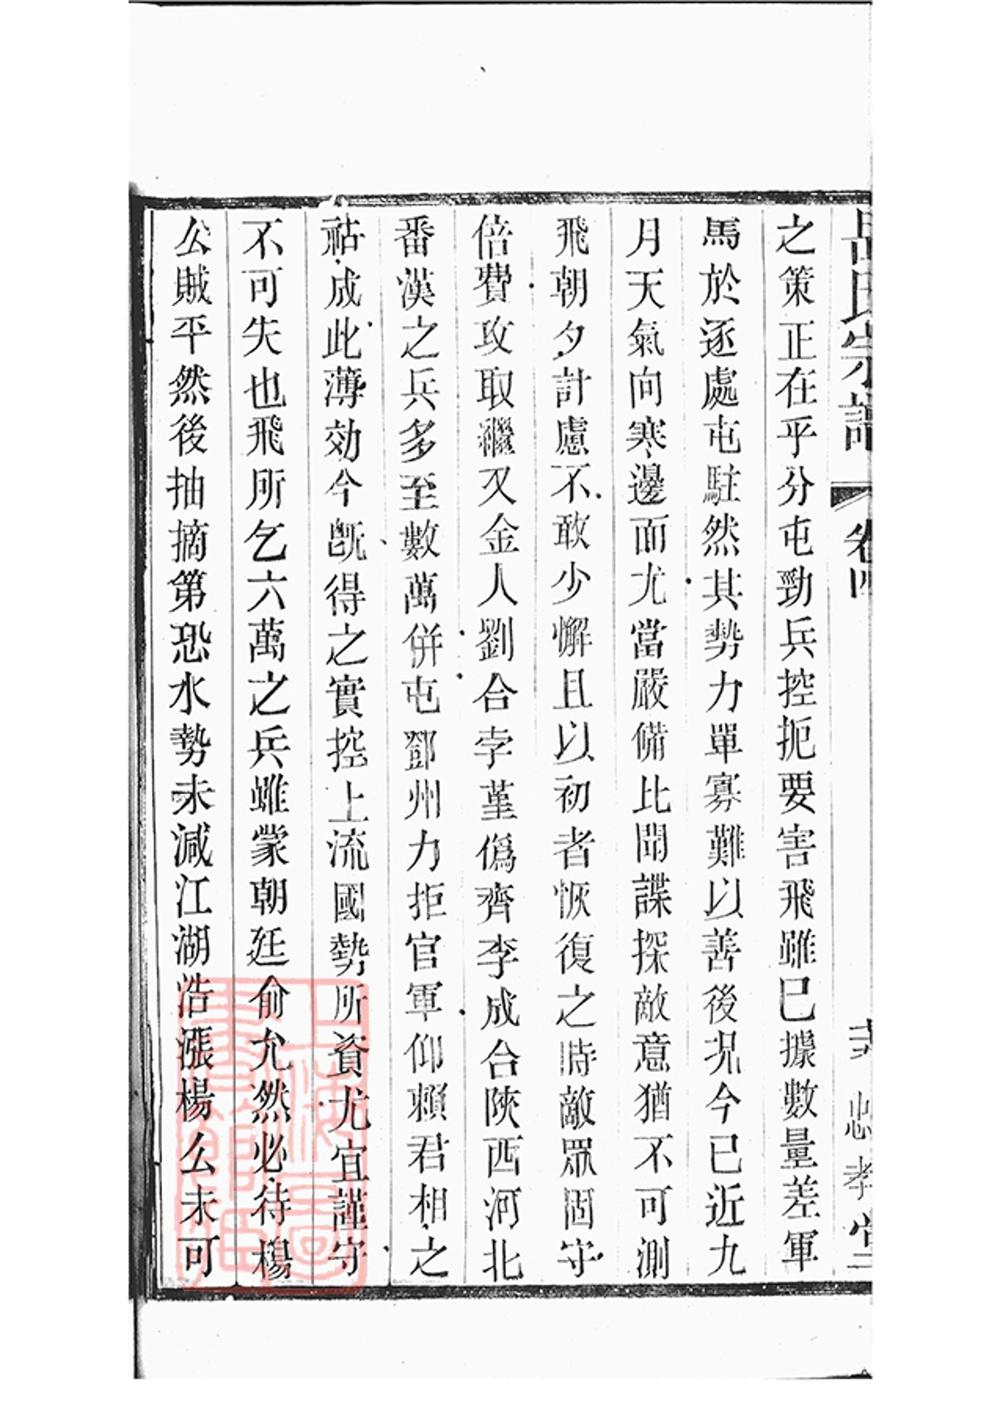 岳氏宗譜 卷四 忠孝堂
之策正在乎分屯勁兵控扼要害飛雖已據數量差軍
馬於逐處屯駐然其勢力單寡難以善後况今已近九
月天氣向寒邊面尤當嚴備比聞諜探敵意猶不可測
飛朝夕計慮不敢少懈且以初者恢復之時敵眾固守
倍費攻取繼又金人劉合孛堇僞齊李成合陝西河北
番漢之兵多至數萬併屯鄧州力拒官軍仰賴君相之
祜成此薄効今旣得之實控上流國勢所資尤宜謹守
不可失也飛所乞六萬之兵雖蒙朝廷俞允然必待楊
公賊平然後抽摘第恐水勢未減江湖浩漲楊么未可
上海圖書館藏